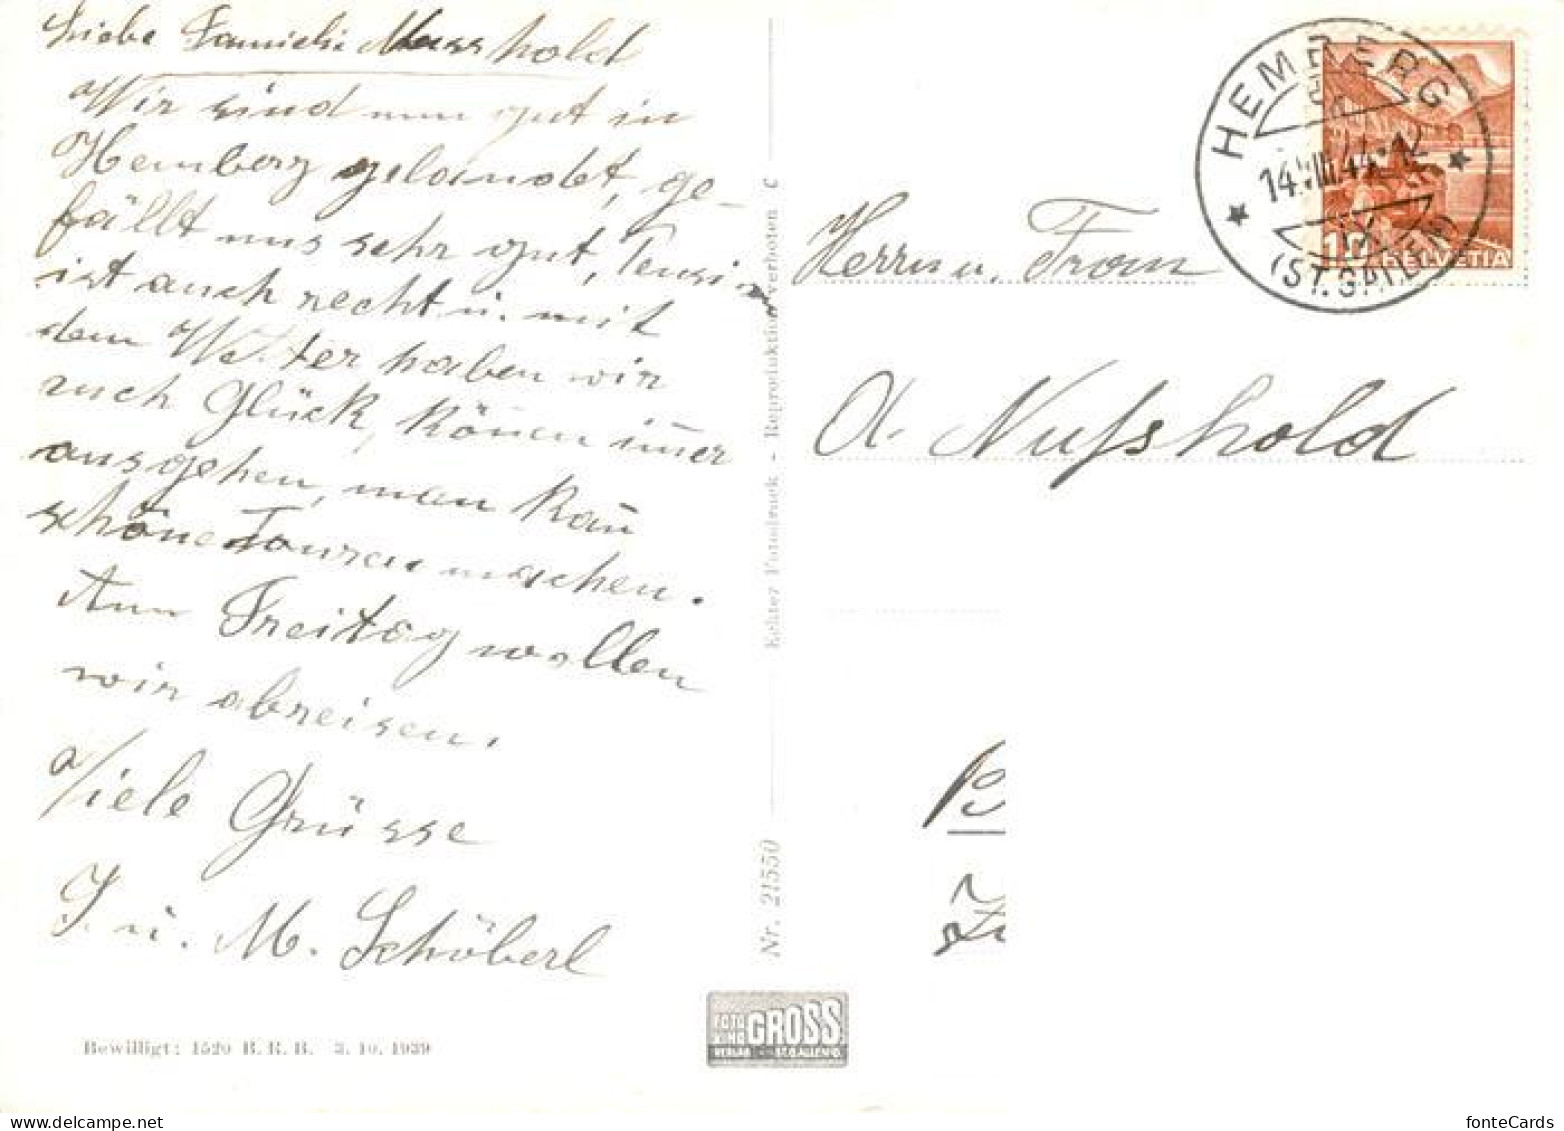 Liebe Familie Nusshold
Wir sind nun gut in
Hemberg gelandet, ge-
fällt uns sehr gut, Pension
ist auch recht u. mit
dem Wetter haben wir
auch Glück, könen imer
ausgehen, man kan
schöne Touren machen.
Am Freitag wollen
wir abreisen.
Viele Grüsse
J. u. M. Schöberl
Bewilligt: 1520 B.R.B. 3.10.1939
Nr. 21550
Echter Fotodruck - Reproduktion verboten C
FOTO GROSS
VERLAG ST. GALLEN
HEMBERG
14.VIII.44-12
(ST. GALLEN)
10 HELVETIA
Herrn u. Frau
A. Nußhold
fonteCards